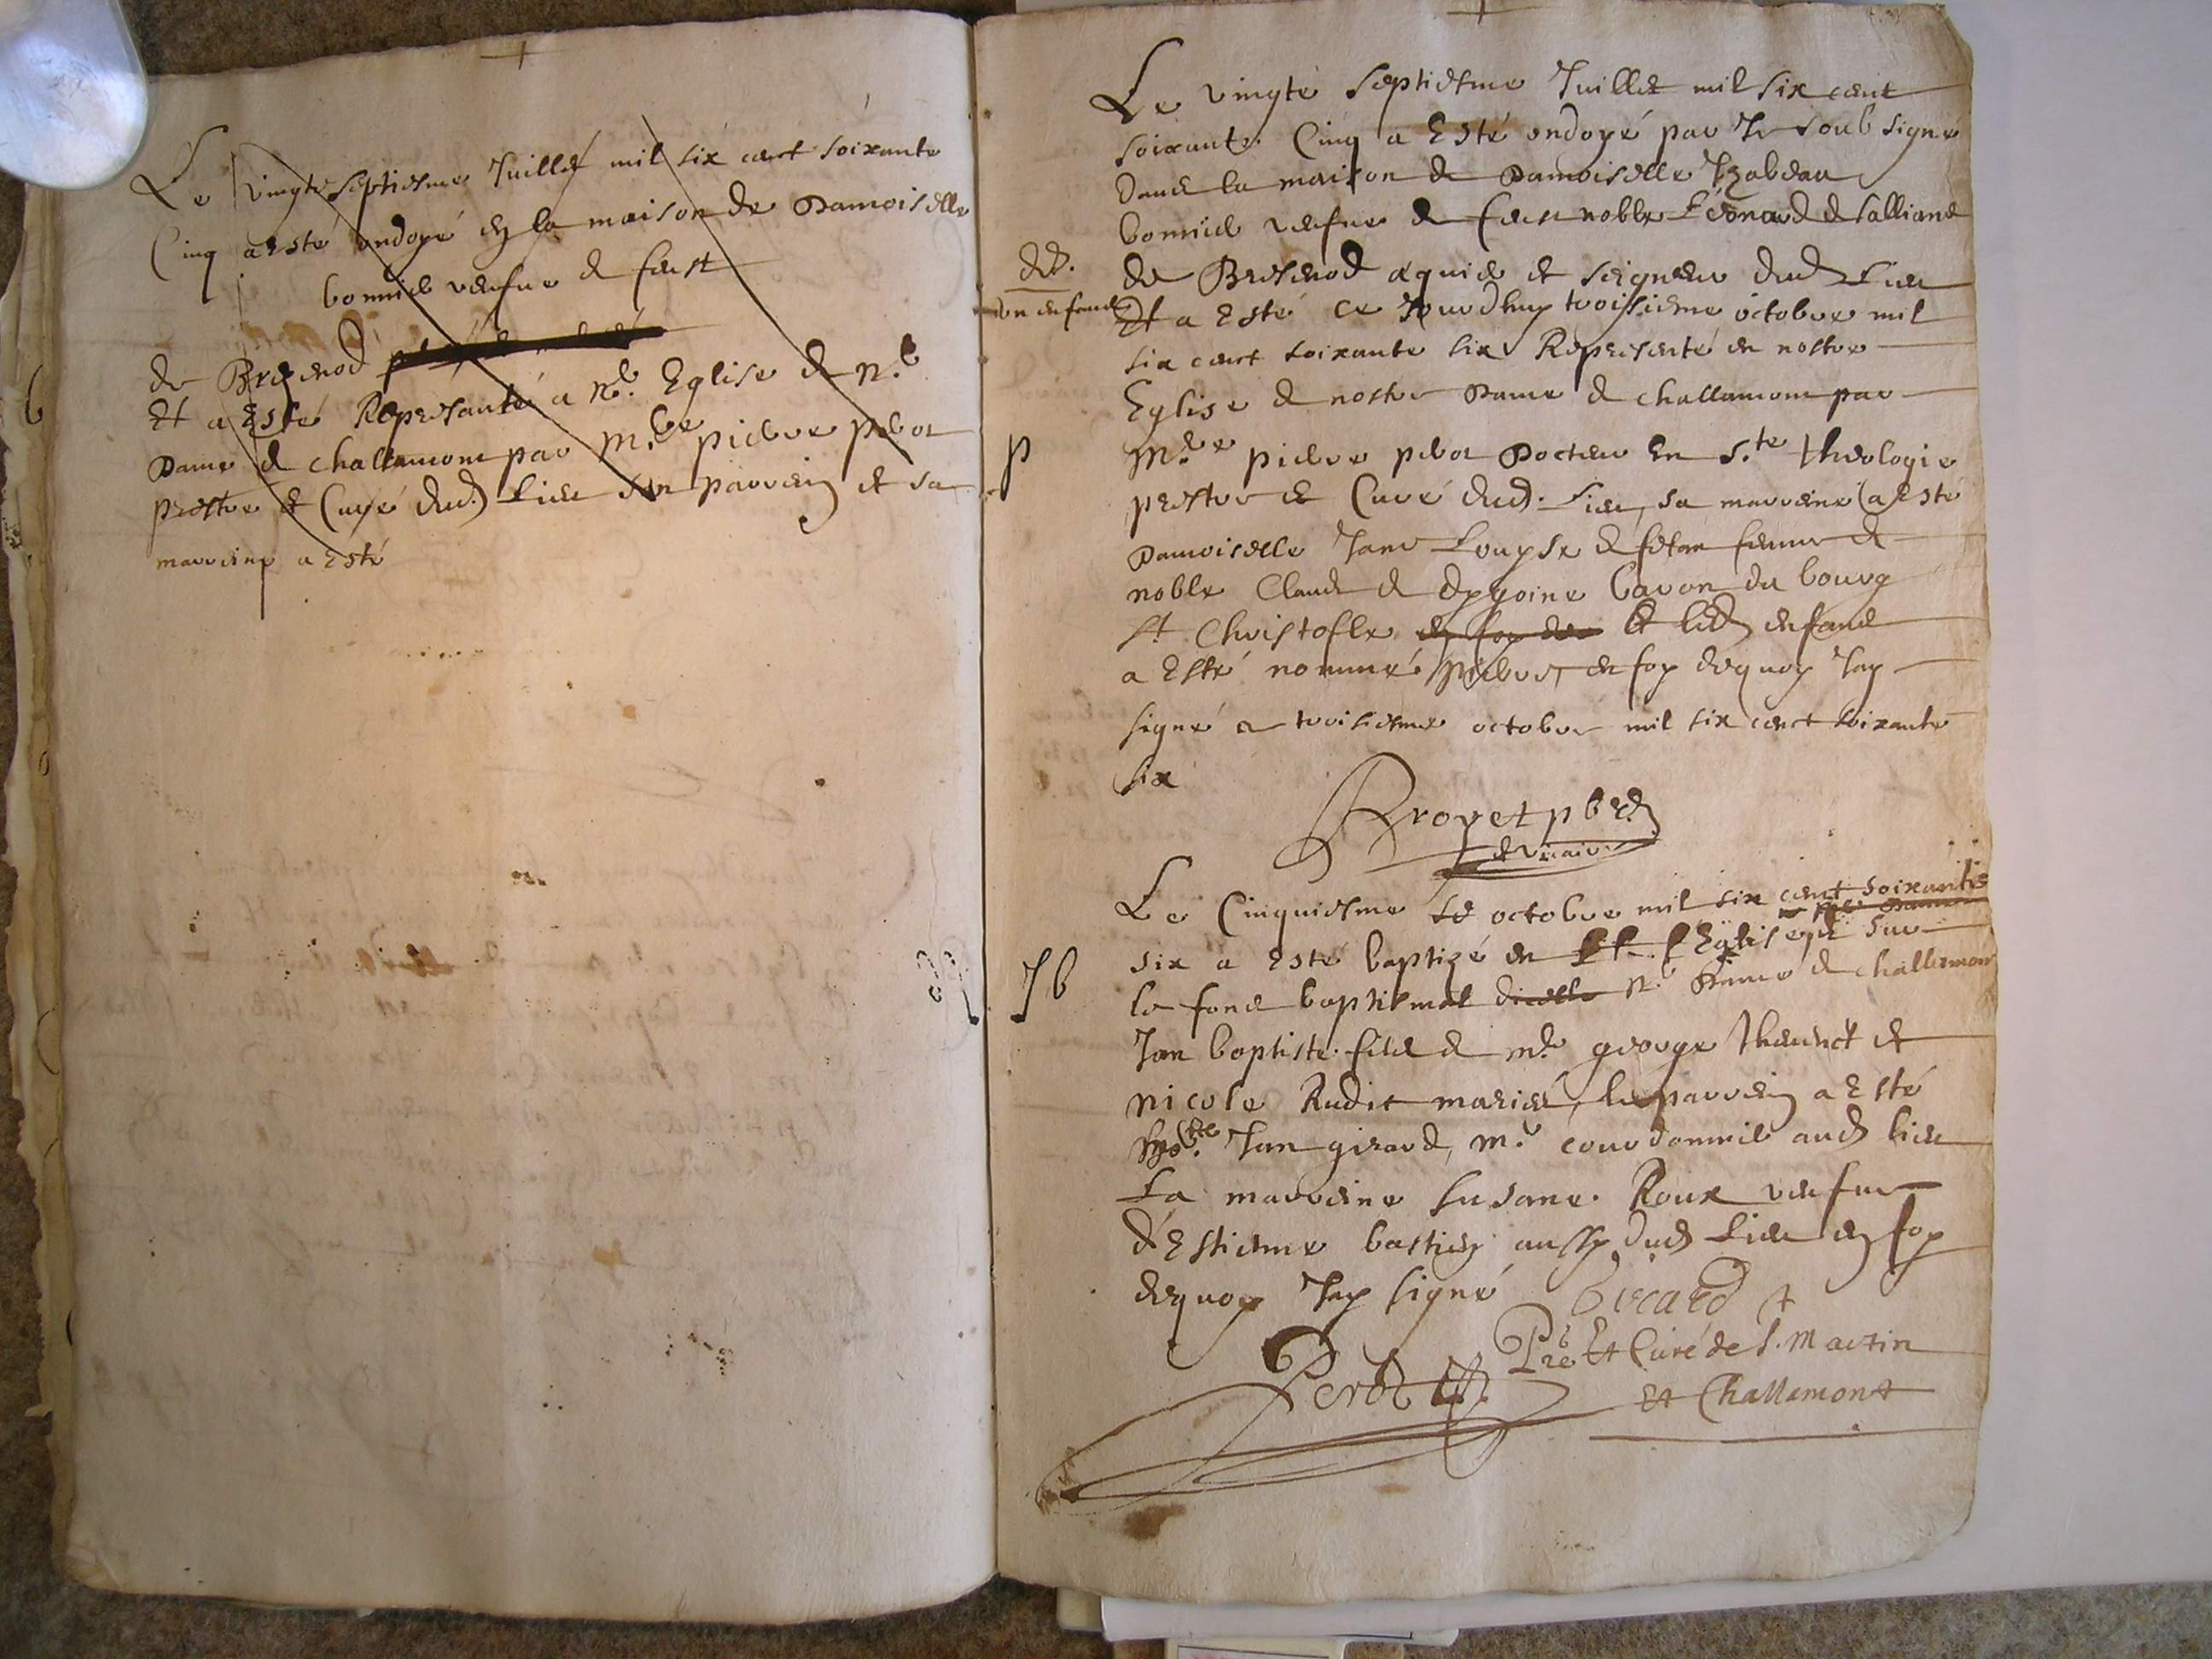 Le vingte septiesme Juillet mil six cent soixante
Cinq a esté ondoyé en la maison de Damoiselle
bonniel veufue de feust
de Bresenod
Et a Esté Represanté a n.e Eglise de n.e
Dame de challamont par M.re pierre perot
prestre et Curé dud. Lieu son parrein et sa
marreine a Esté
Le vingte septiesme Juillet mil six cent
soixante Cinq a Esté ondoyé par Je soub signé
dans la maison de Damoiselle Izabeau
bonniel veufue de feust noble Léonard de Salliand
de Bresenod et seigneur dud Lieu
un enfand
Et a Esté Ce Jourdhuy troisiesme octobre mil
six cent soixante six Representé en nostre
Eglise de nostre Dame de challamont par
p
M.re pierre perot Docteur En S.te theologie
prestre et Curé dud. Lieu, sa marreine a Esté
Damoiselle Jane Louyse de femme de
noble Claude de baron du bourg
St Christofle et led enfand
a Esté nommé pierre, en foy dequoy Jay
signé ce troisiesme octobre mil six cent soixante
six
pbre
et vicaire
Le Cinquiesme octobre mil six cent soixante
six a Esté baptizé en Eglise sur
Jb
le fond baptismal dicelle n.e Dame de challamont
Jan baptiste filz de M.e george et
nicole Rudit mariés, le parrein a Esté
Jan girard, M.e courdonnier aud lieu
La marreine Susane Roux veufue
d'Estienne bastien aussy dud Lieu en foy
dequoy Jay signé
Perot
Pre Et Curé de S. Martin
et Challamont